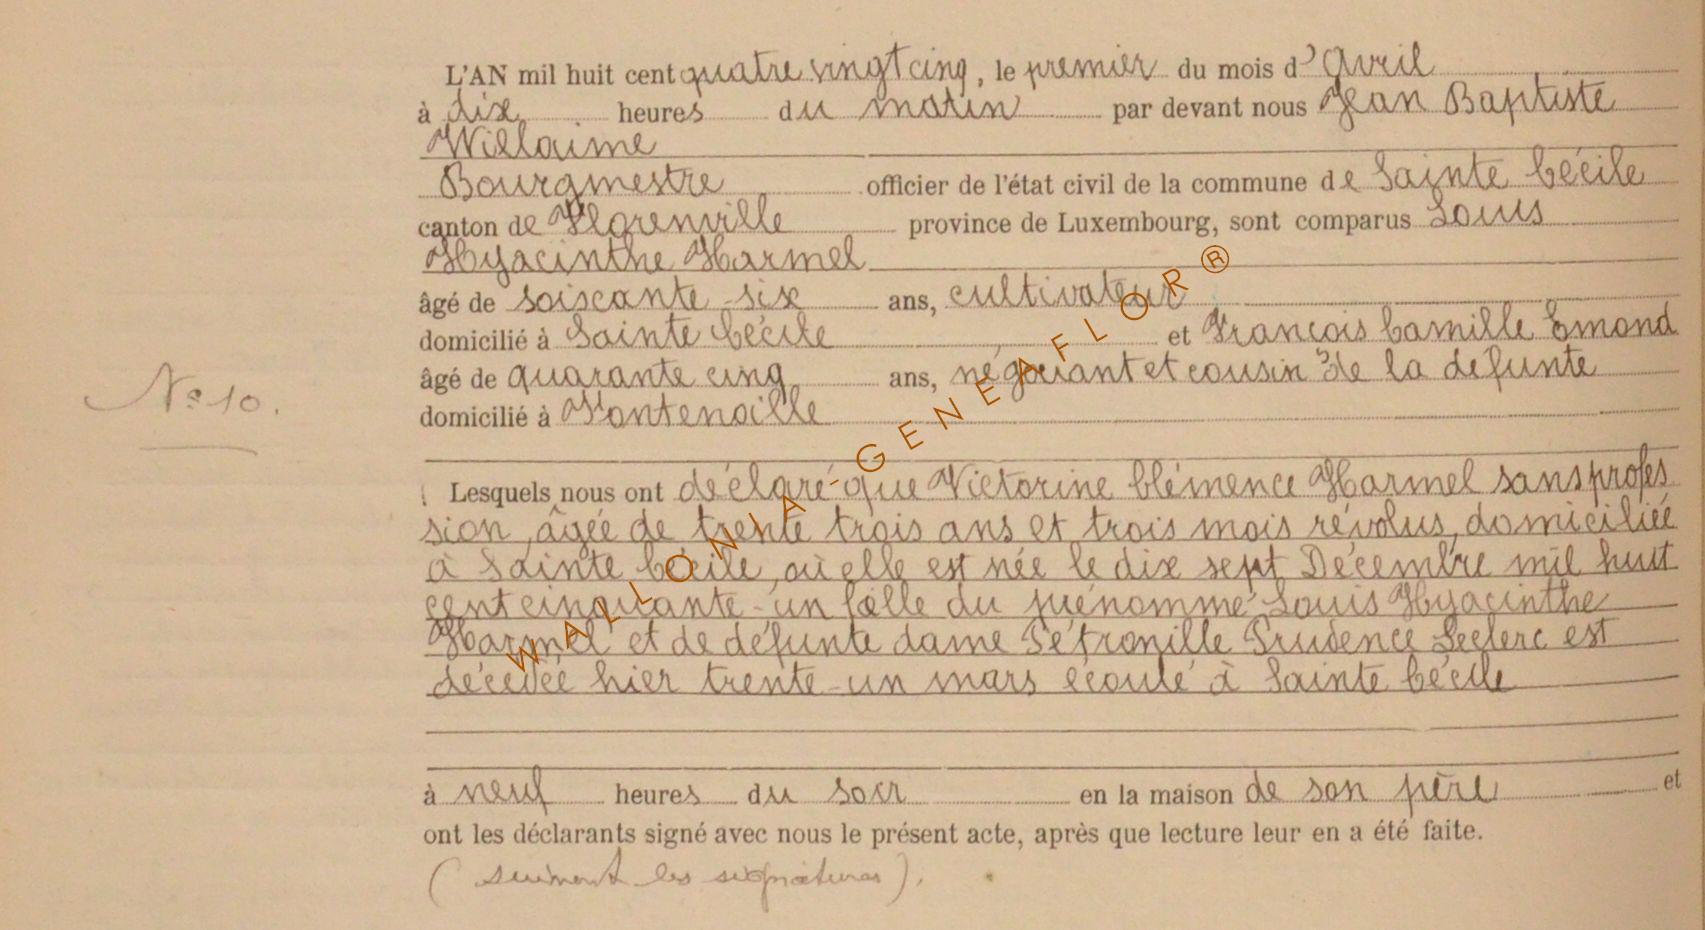 L'AN mil huit cent quatre vingt cinq, le premier du mois d'Avril
à dix heures du matin par devant nous Jean Baptiste
Willaime
Bourgmestre officier de l'état civil de la commune de Sainte Cécile
canton de Florenville province de Luxembourg, sont comparus Louis
Hyacinthe Harmel
âgé de soiscante-six ans, cultivateur
domicilié à Sainte Cécile et François Camille Emond
âgé de quarante cinq ans, négociant et cousin de la défunte
domicilié à Fontenoille
Nº 10.
Lesquels nous ont déclaré que Victorine Clémence Harmel sans profes
sion, âgée de trente trois ans et trois mois révolus, domiciliée
à Sainte Cécile, où elle est née le dix sept Décembre mil huit
cent cinquante-un fille du prénommé Louis Hyacinthe
Harmel et de défunte dame Pétronille Prudence Leclerc est
décédée hier trente-un mars écoulé à Sainte Cécile
à neuf heures du soir en la maison de son père et
ont les déclarants signé avec nous le présent acte, après que lecture leur en a été faite.
(suivent les signatures).
WALLONIA-GENEAFLOR®